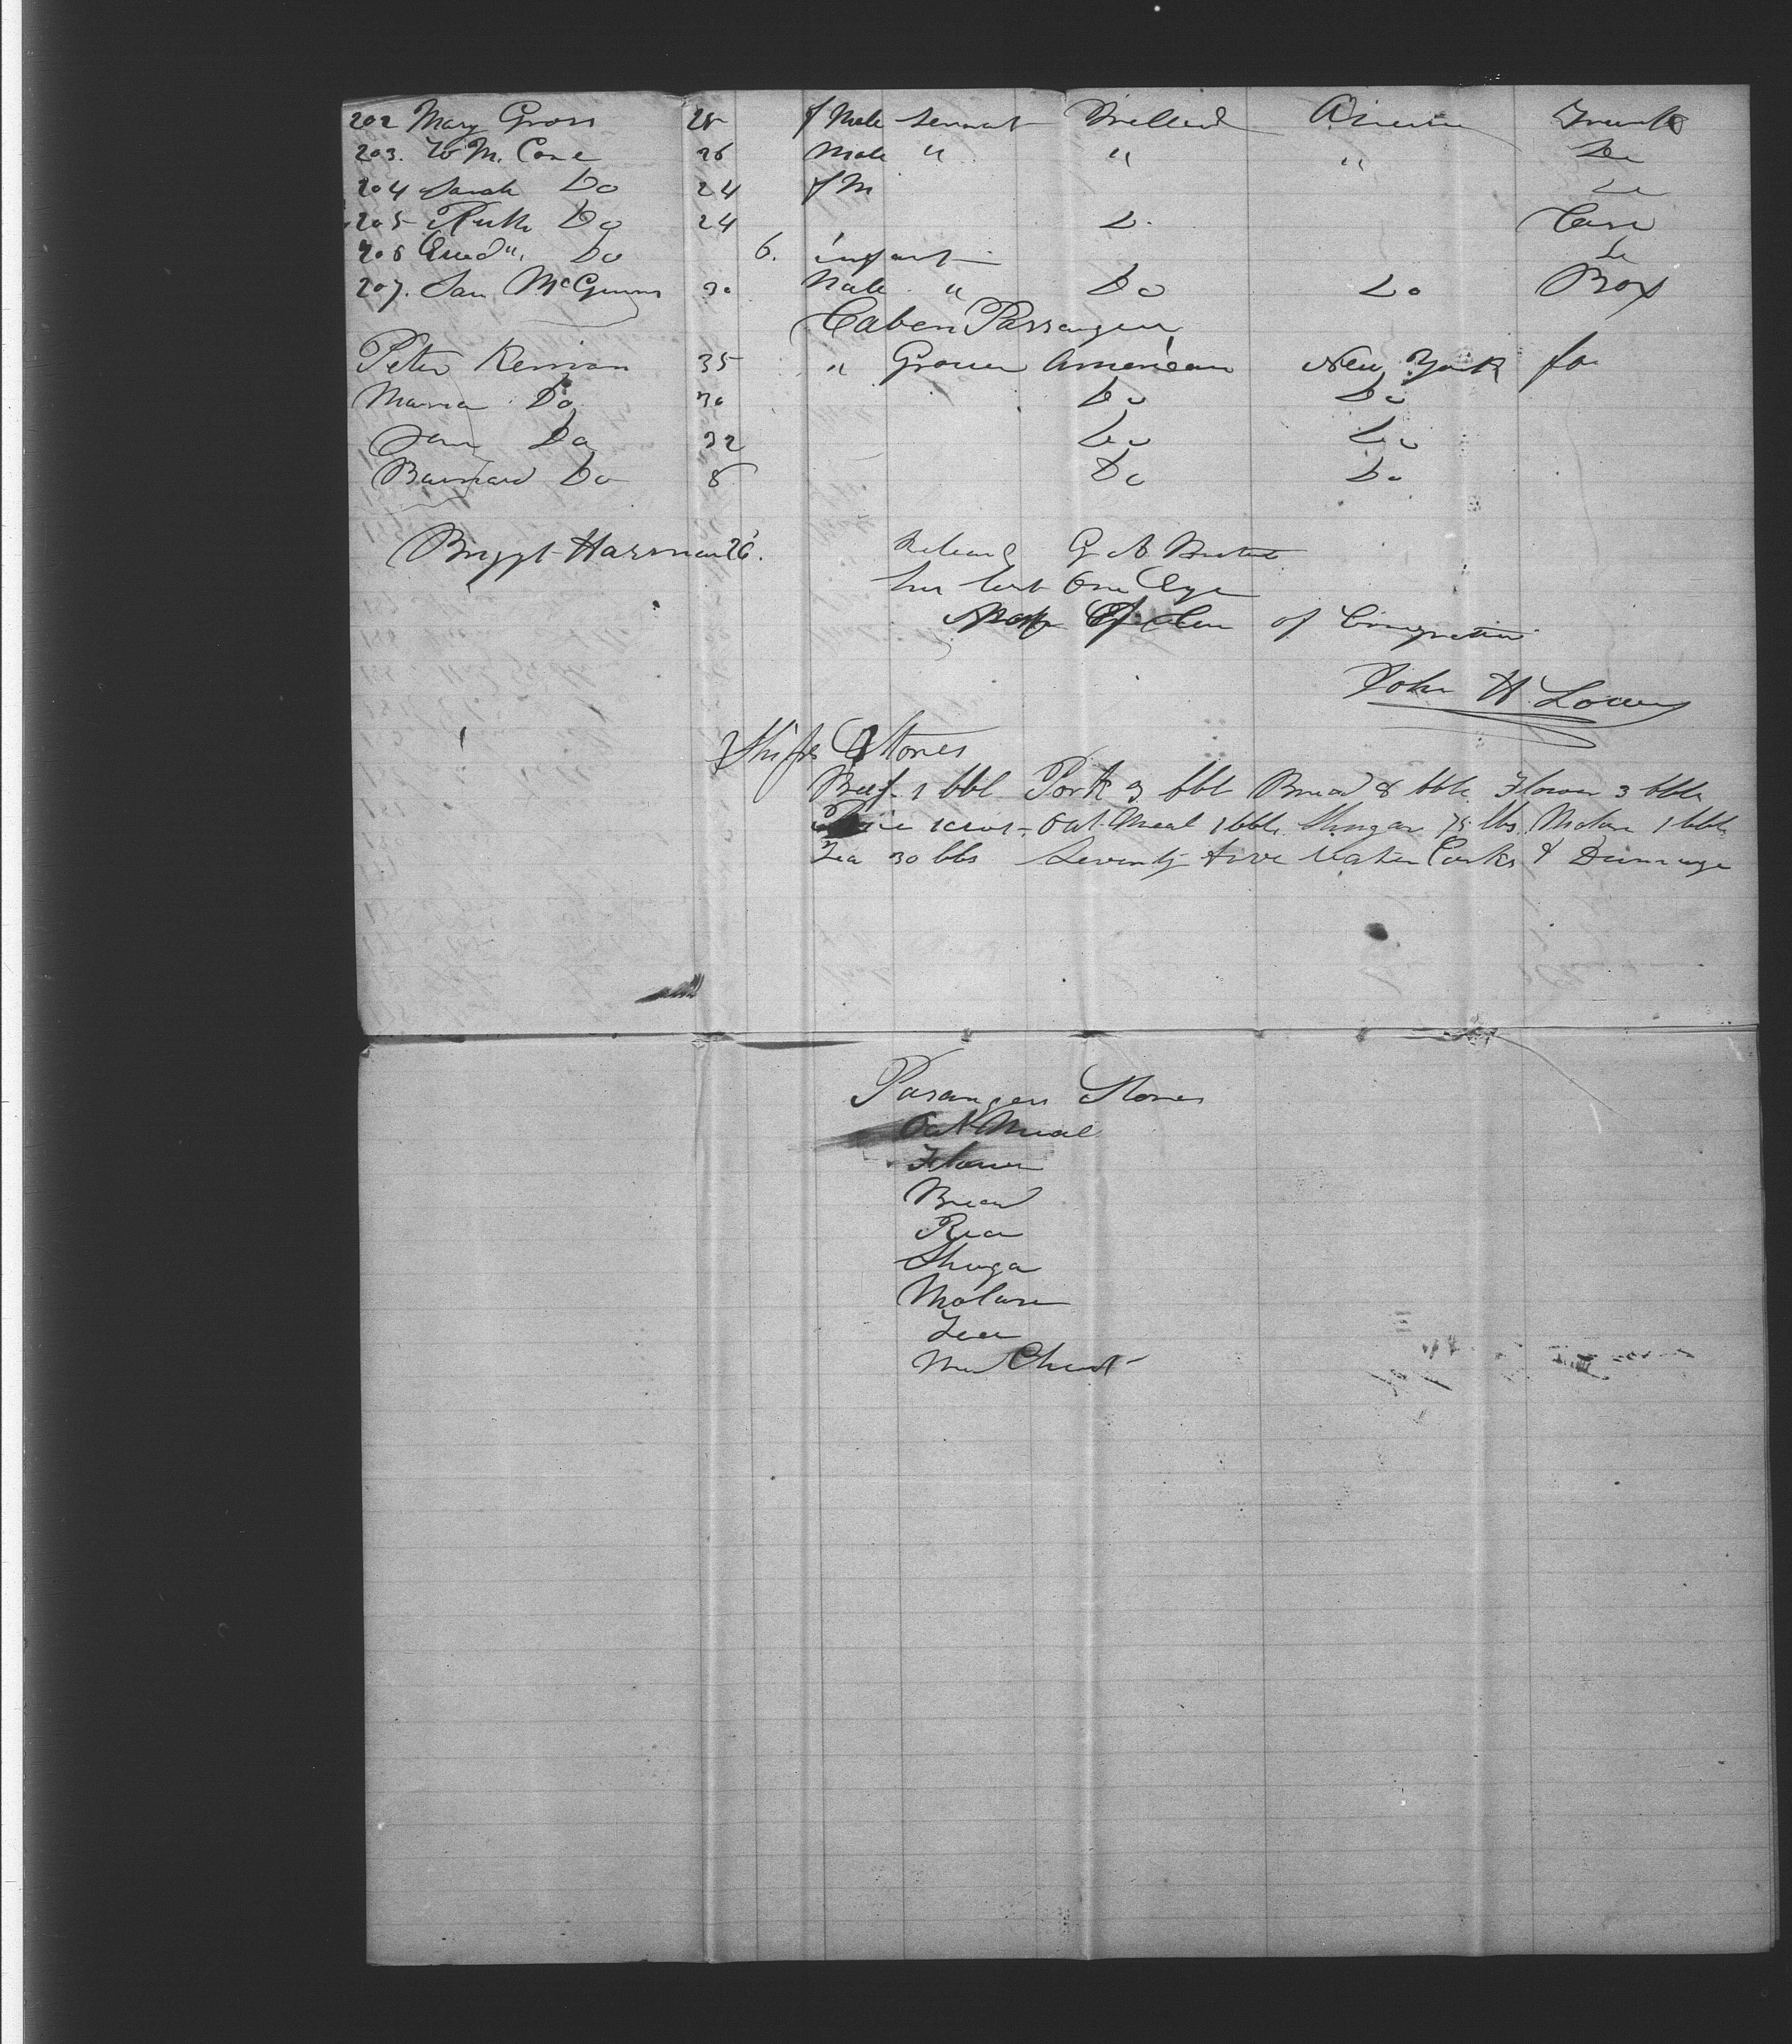 202 Mary Gross 25 f Male Servant Irelland America Trunk
203. W M. Cone 26 Male " " " Do
204 Sarah Do 24 f M Do
205 Ruth Do 24 D. Case
206 Do 6. infant Do
207. McGinnis 30 Male " Do Do Box
Caben Passengers
Peter Kernan 35 " Grocer American New York
Maria Do 30 Do Do
Jane Do 32 Do Do
Barnard Do 8 Do Do
26.
has lost One Eye
of
John H.
Ships Stores
Beef 1 bbl Pork 3 bbl Bread 8 bbls Flower 3 bbls
Oat Meal 1 bbls Shugar 75 lbs Molase 1 bbls
Tea 30 lbs Seventy five Water Casks & Dunnage
Pasangers Stores
Oat Meal
Flower
Bread
Rice
Shuga
Molase
Tea
Med Chest